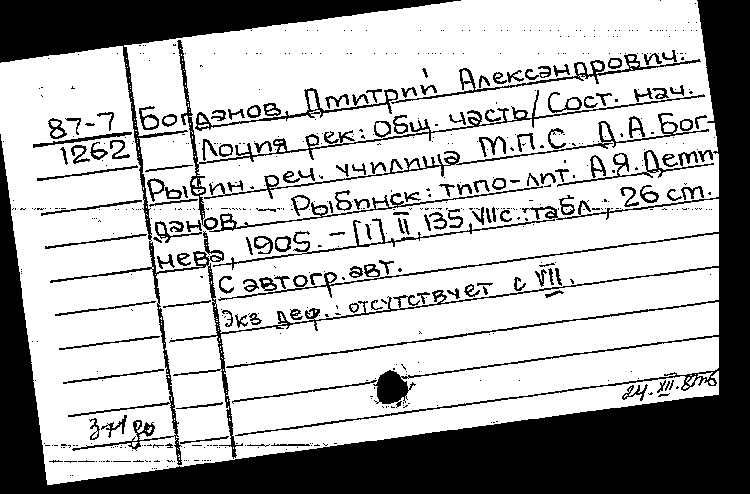 87-7 Богданов, Дмитрий Александрович.
1262 Лоция рек: Общ. часть / Сост. нач.
Рыбин. реч. училища М.П.С. Д.А. Бог-
данов. - Рыбинск: типо-лит. А.Я. Деми-
нева, 1905. - [1], II, 135, VII с.: табл.; 26 см.
С автогр. авт.
Экз деф.: отсутствует с VII.
24. XII. 87